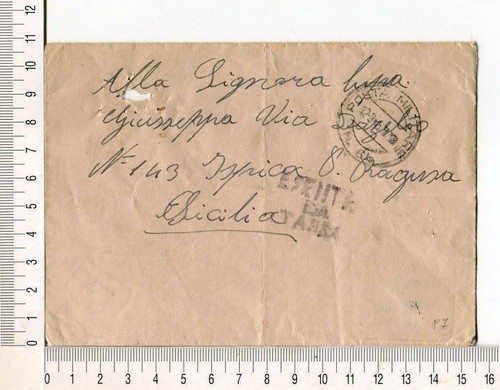 Alla Signora Lupa
Giusseppa Via
N° 143 Ispica P. Ragusa
Sicilia
POSTA MILITARE
ESENTE
DA
TASSA
P7
12
11
10
9
8
7
6
5
4
3
2
1
0
0 1 2 3 4 5 6 7 8 9 10 11 12 13 14 15 16